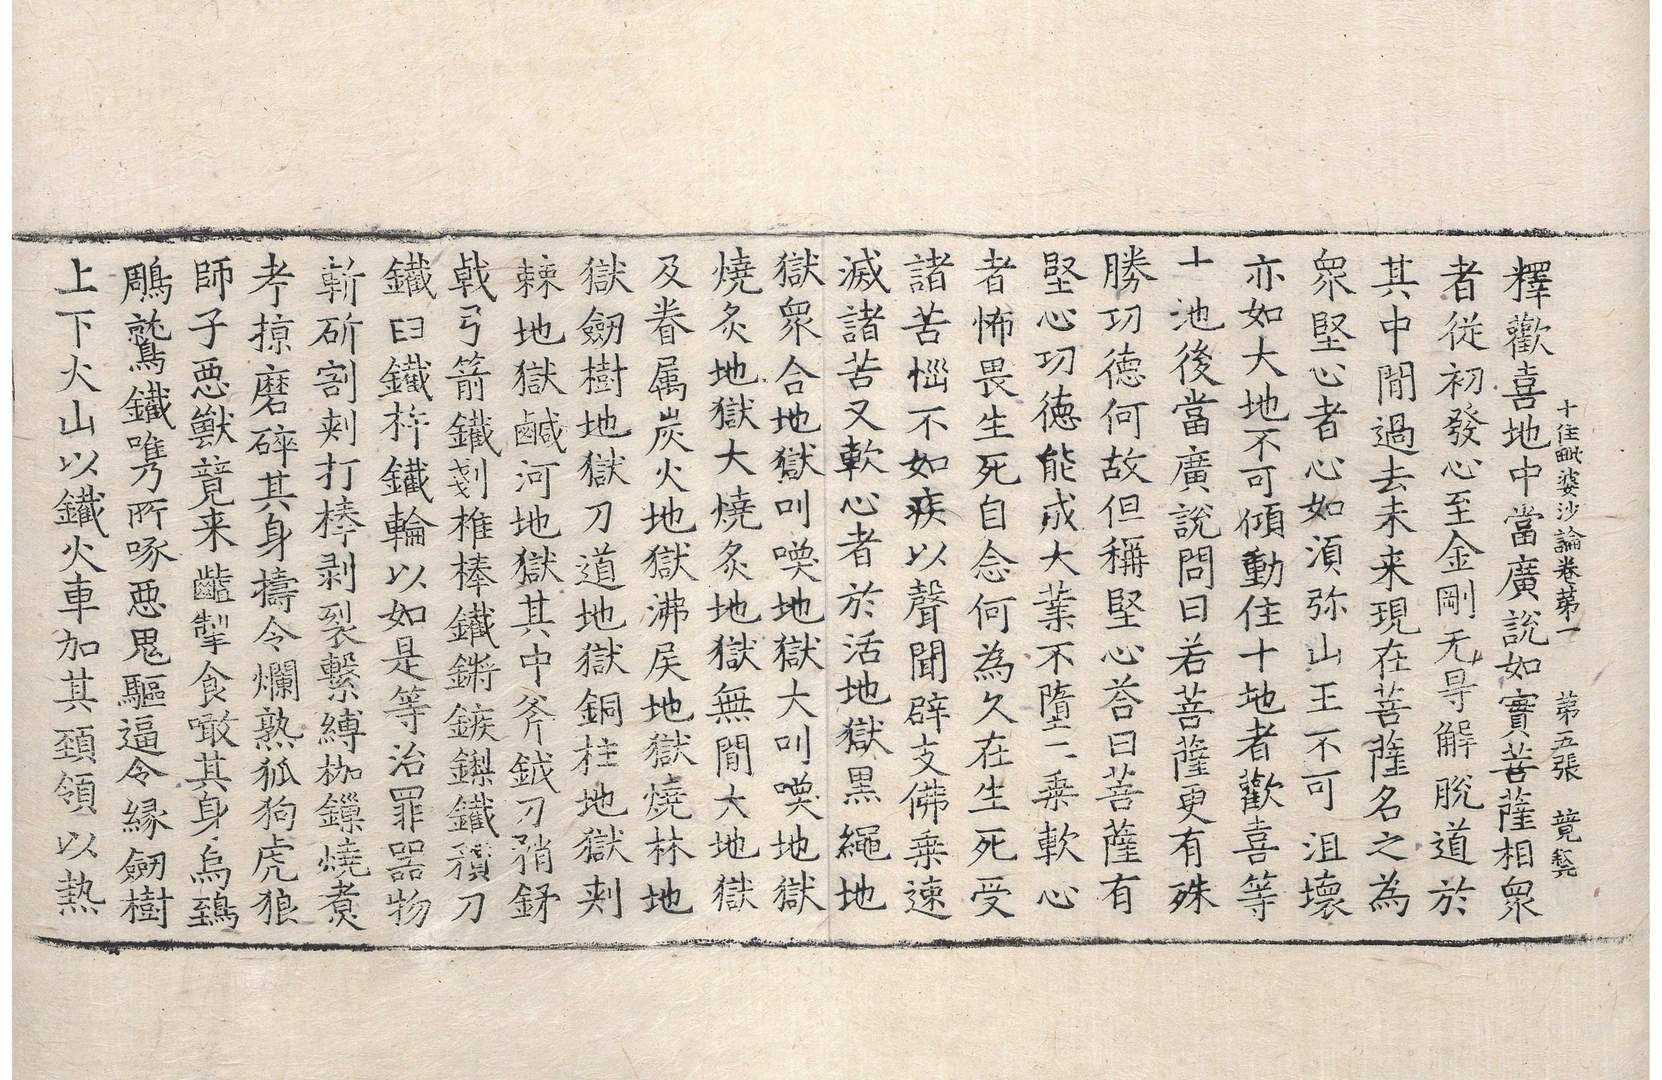 十住毗婆沙論卷第一 第五張 竟
釋歡喜地中當廣說如實菩薩相衆
者從初發心至金剛无㝵解脫道於
其中閒過去未来現在菩薩名之為
衆堅心者心如湏弥山王不可沮壞
亦如大地不可傾動住十地者歡喜等
十地後當廣說問曰若菩薩更有殊
勝功德何故但稱堅心荅曰菩薩有
堅心功德能成大業不墮二乗軟心
者怖畏生死自念何為久在生死受
諸苦惱不如疾以聲聞辟支佛乗速
滅諸苦又軟心者於活地獄黒繩地
獄衆合地獄叫喚地獄大叫喚地獄
燒炙地獄大燒炙地獄無閒大地獄
及眷属炭火地獄沸屎地獄燒林地
獄劒樹地獄刀道地獄銅柱地獄刾
棘地獄鹹河地獄其中斧鉞刀矟鉾
戟弓箭鐵剗椎棒鐵鏘鏃鏫鐵䂎刀
鐵臼鐵杵鐵輪以如是等治罪器物
斬斫割刾打棒剥裂繫縛枷鏁燒煑
考掠磨碎其身擣令爛熟狐狗虎狼
師子惡獸競来齟掣食噉其身烏鵄
鵰鷲鐵㭰所啄惡鬼驅逼令縁劒樹
上下火山以鐵火車加其頚領以熱